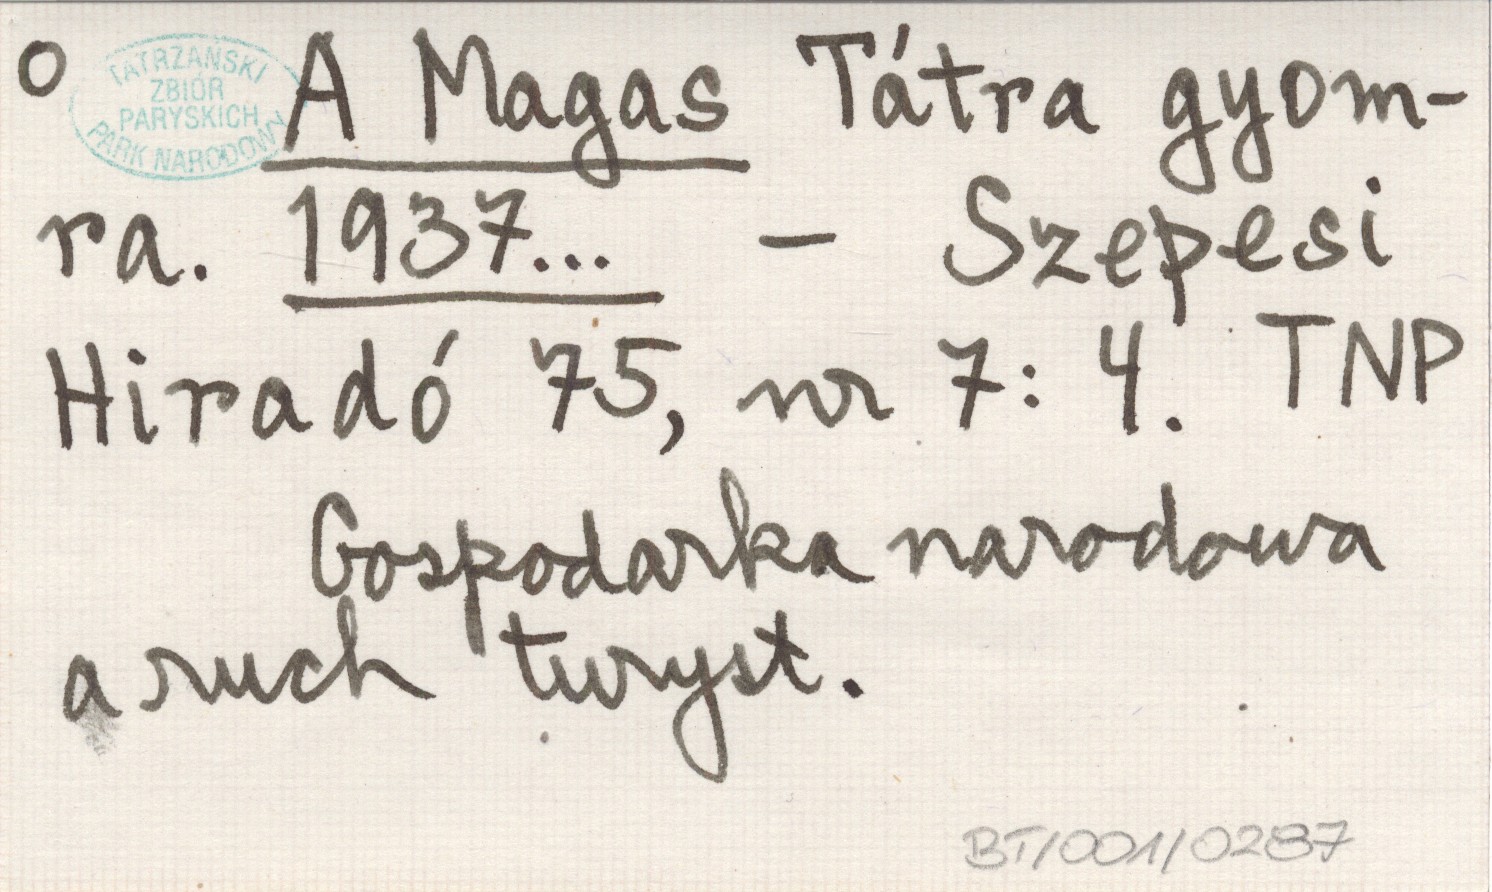 o A Magas Tátra gyom-
TATRZAŃSKI
ZBIÓR
PARYSKICH
PARK NARODOWY
ra. 1937... – Szepesi
Hiradó 75, nr 7: 4. TNP
Gospodarka narodowa
a ruch turyst.
BT/001/0287